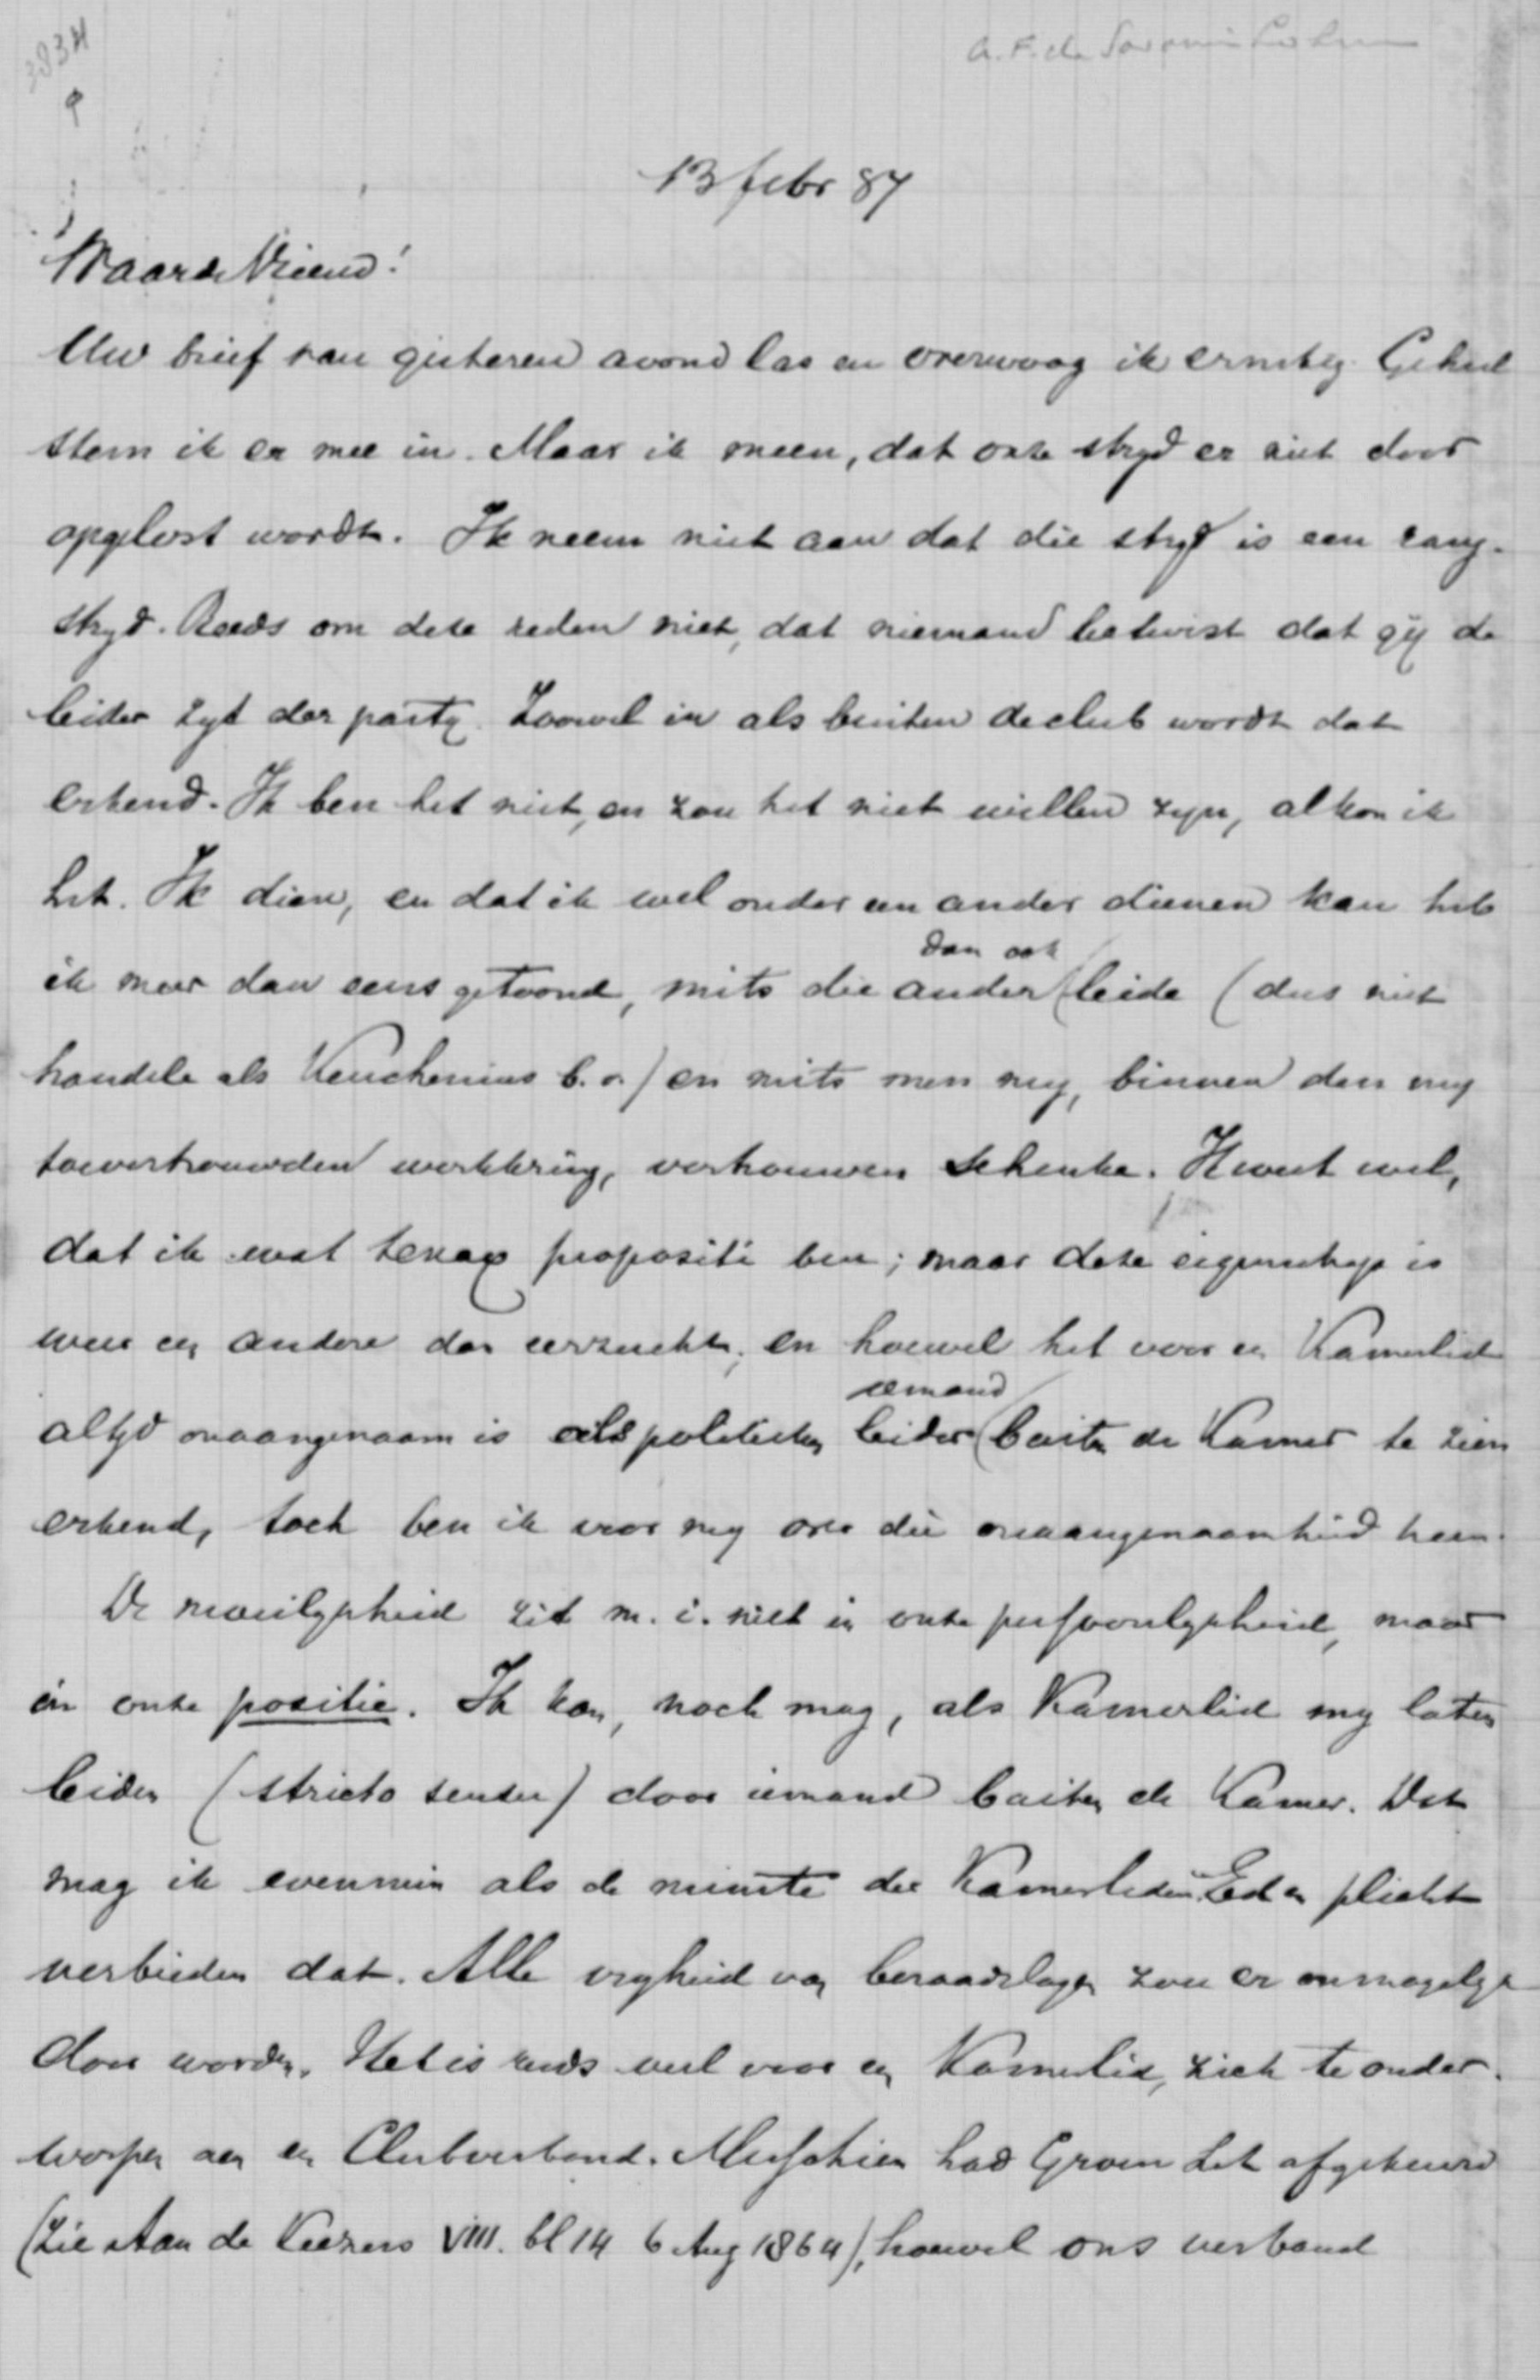 3834
9
A. F. de Savornin Lohman
13 febr 87
Waarde Vriend!
Uw brief van gisteren avond las en overwoog ik ernstig. Geheel
stem ik er mee in. Maar ik meen, dat onze stryd er niet door
opgelost wordt. Ik neem niet aan dat die stryd is een rang-
stryd. Reeds om deze reden niet, dat niemand betwist dat gij de
leider zyt der party. Zoowel in als buiten de club wordt dat
erkend. Ik ben het niet, en zou het niet willen zyn, al kon ik
het. Ik dien, en dat ik wel onder een ander dienen kan heb
ik meer dan eens getoond, mits die ander dan ook leide (dus niet
handele als Keuchenius b.v.) en mits men my, binnen den my
toevertrouwden werkkring, vertrouwen schenke. Ik weet wel,
dat ik wat tenax propositi ben; maar deze eigenschap is
weer een andere dan eerzucht; en hoewel het voor een Kamerlid
altyd onaangenaam is als politieken leider iemand buiten de Kamer te zien
erkend, toch ben ik voor my over die onaangenaamheid heen.
De moeilykheid zit m. i. niet in onze persoonlykheid, maar
in onze positie. Ik kan, noch mag, als Kamerlid my laten
leiden (stricto sensu) door iemand buiten de Kamer. Dat
mag ik evenmin als de minste der Kamerleden. Eed en plicht
verbieden dat. Alle vryheid van beraadslagen zou er onmogelyk
door worden. Het is reeds veel voor een Kamerlid, zich te onder-
werpen aan een Clubverband. Misschien had Groen dat afgekeurd
(Zie Aan de Kiezers VIII. bl 14 6 Aug 1864), hoewel ons verband